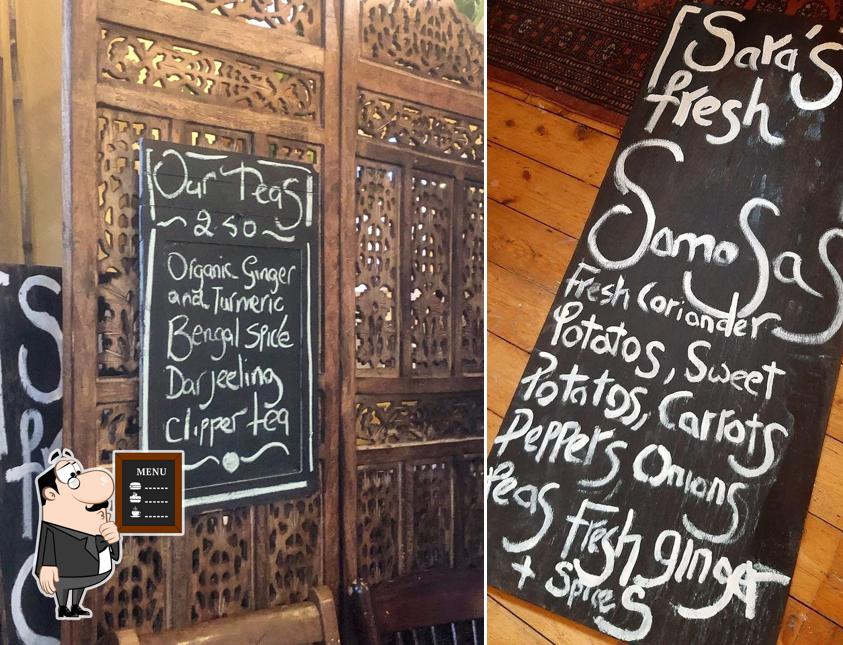 Our Teas
~ 2.50 ~
Organic Ginger
and Turmeric
Bengal Spice
Darjeeling
clipper tea
MENU
Sara's
fresh
Samosas
Fresh Coriander
Potatos, Sweet
Potatos, Carrots
Peppers Onions
Peas Fresh ginger
+ Spices